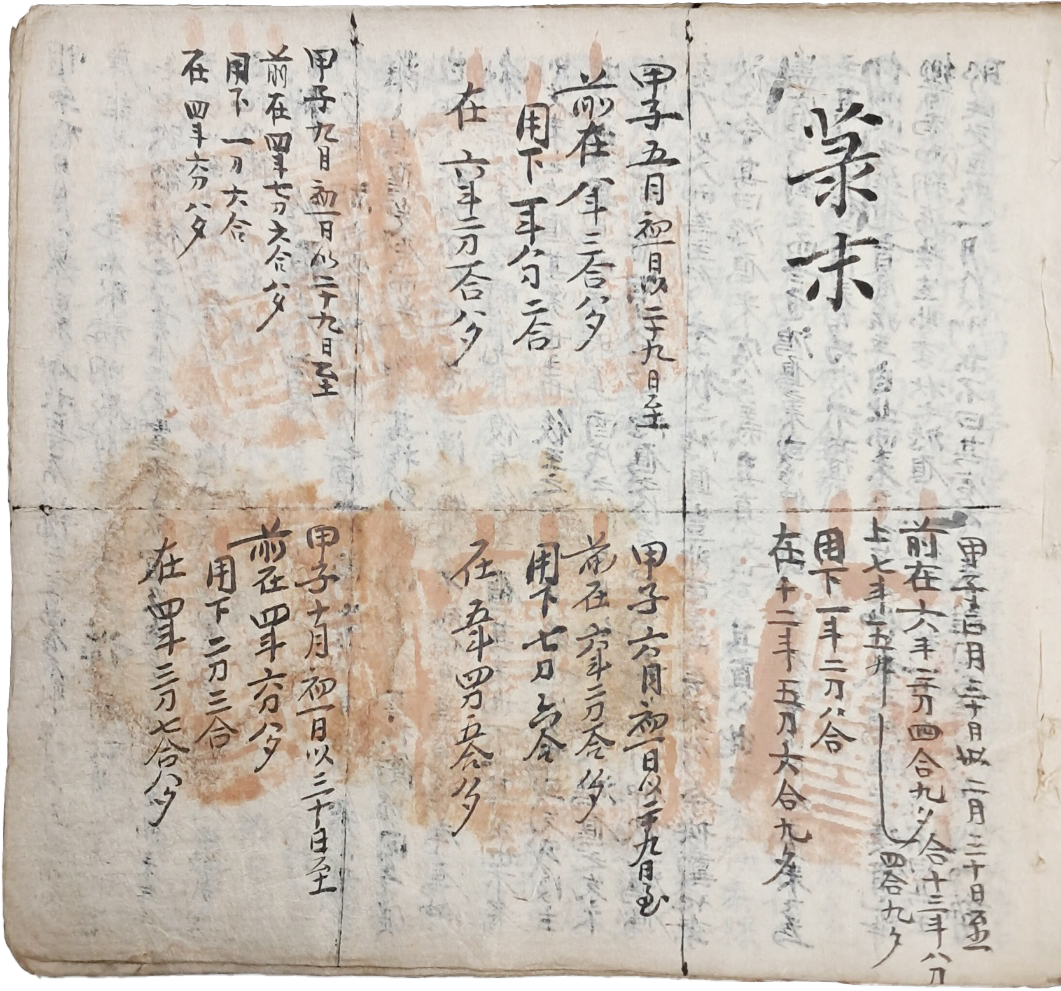 菉末
甲子正月三十日以二月三十日至
前在六斗三刀四合九夕合十三斗八刀
四合九夕
上七斗五升
用下一斗二刀八合
在十二斗五刀六合九夕
甲子五月初一日以二十九日至
前在八斗三合八夕
用下一斗八刀二合
在六斗二刀一合八夕
甲子六月初一日以二十九日至
前在六斗二刀一合八夕
用下七刀六合
在五斗四刀五合八夕
甲子九月初一日以二十九日至
前在四斗七刀六合八夕
用下一刀六合
在四斗六刀八夕
甲子十月初一日以三十日至
前在四斗六刀八夕
用下二刀三合
在四斗三刀七合八夕